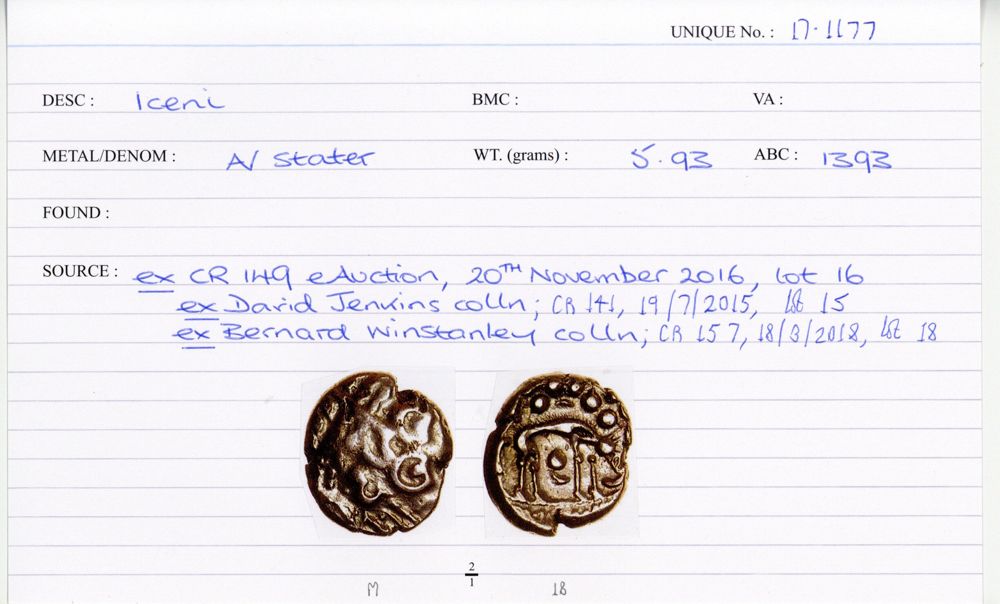 UNIQUE No. : 17·1177
DESC : Iceni BMC : VA :
METAL/DENOM : A/ Stater WT. (grams) : 5.93 ABC : 1393
FOUND :
SOURCE : ex CR 149 eAuction, 20TH November 2016, lot 16
ex David Jenkins colln; CR 141, 19/7/2015, lot 15
ex Bernard Winstanley colln; CR 157, 18/3/2018, lot 18
2
1
M 18